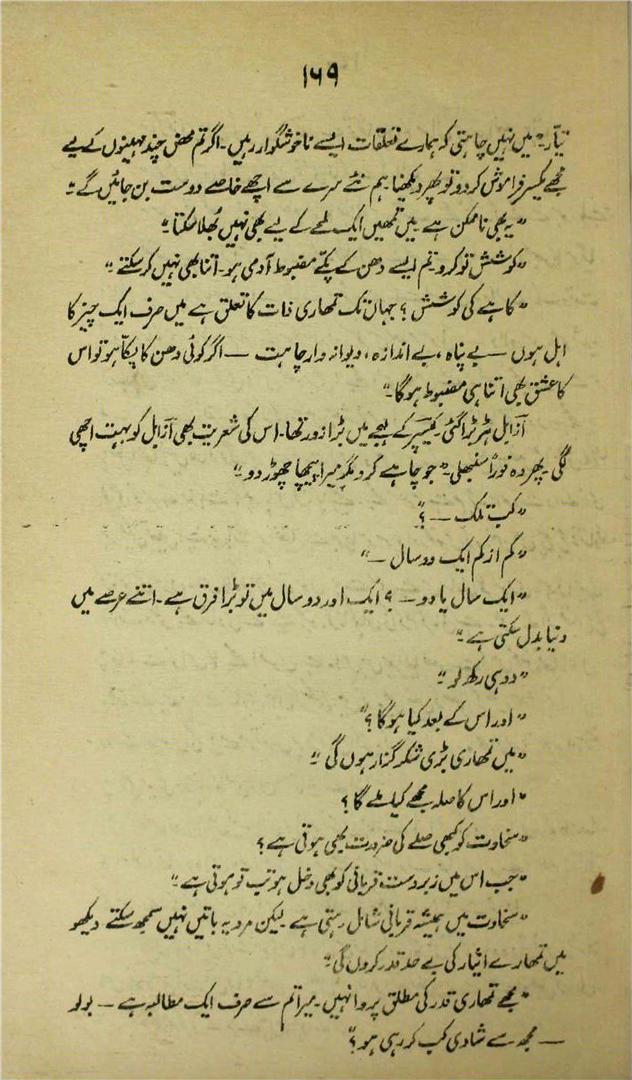 ۱۶۹
تیار۔" میں نہیں چاہتی کہ ہمارے تعلقات ایسے ناخوشگوار رہیں۔ اگر تم محض چند مہینوں کے لیے
مجھے یکسر فراموش کر دو تو پھر دیکھنا ہم نئے سرے سے اچھے خاصے دوست بن جائیں گے۔"
"یہ بھی ناممکن ہے میں تمھیں ایک لمحے کے لیے بھی نہیں بھلا سکتا۔"
"کوشش تو کرو۔ تم ایسے دھن کے پکے مضبوط آدمی ہو۔ اتنا بھی نہیں کر سکتے۔"
"کاہے کی کوشش؟ جہاں تک تمھاری ذات کا تعلق ہے میں صرف ایک چیز کا
اہل ہوں — بے پناہ، بے اندازہ، دیوانہ وار چاہت — اگر کوئی دھن کا پکا ہو تو اس
کا عشق بھی اتنا ہی مضبوط ہوگا۔"
آزابل ہڑبڑا گئی۔ کیسپر کے لہجے میں بڑا زور تھا۔ اس کی شعریت بھی آزابل کو بہت اچھی
لگی۔ پھر وہ فوراً سنبھلی۔ "جو چاہے کرو مگر میرا پیچھا چھوڑ دو۔"
"کب تلک —؟"
"کم از کم ایک دو سال —"
"ایک سال یا دو — ؟ ایک اور دو سال میں تو بڑا فرق ہے۔ اتنے عرصے میں
دنیا بدل سکتی ہے۔"
"دو ہی رکھ لو۔"
"اور اس کے بعد کیا ہوگا؟"
"میں تمھاری بڑی شکر گزار ہوں گی۔"
"اور اس کا صلہ مجھے کیا ملے گا؟
"سخاوت کو کبھی صلے کی ضرورت بھی ہوتی ہے؟
"جب اس میں زبردست قربانی کو بھی دخل ہو تب تو ہوتی ہے۔"
"سخاوت میں ہمیشہ قربانی شامل رہتی ہے۔ لیکن مرد یہ باتیں نہیں سمجھ سکتے دیکھو
میں تمھارے ایثار کی بے حد قدر کروں گی۔"
"مجھے تمھاری قدر کی مطلق پروا نہیں۔ میرا تم سے صرف ایک مطالبہ ہے — بولو
— مجھ سے شادی کب کر رہی ہو؟"